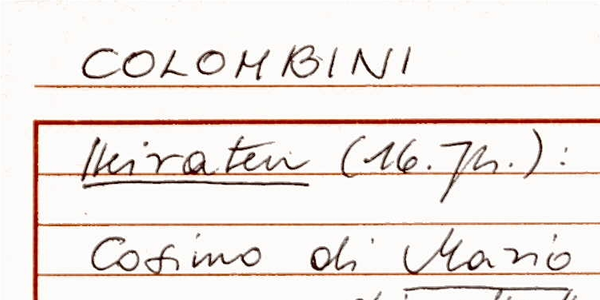 COLOMBINI
Heiraten (16. Jh.):
Cosimo di Mario